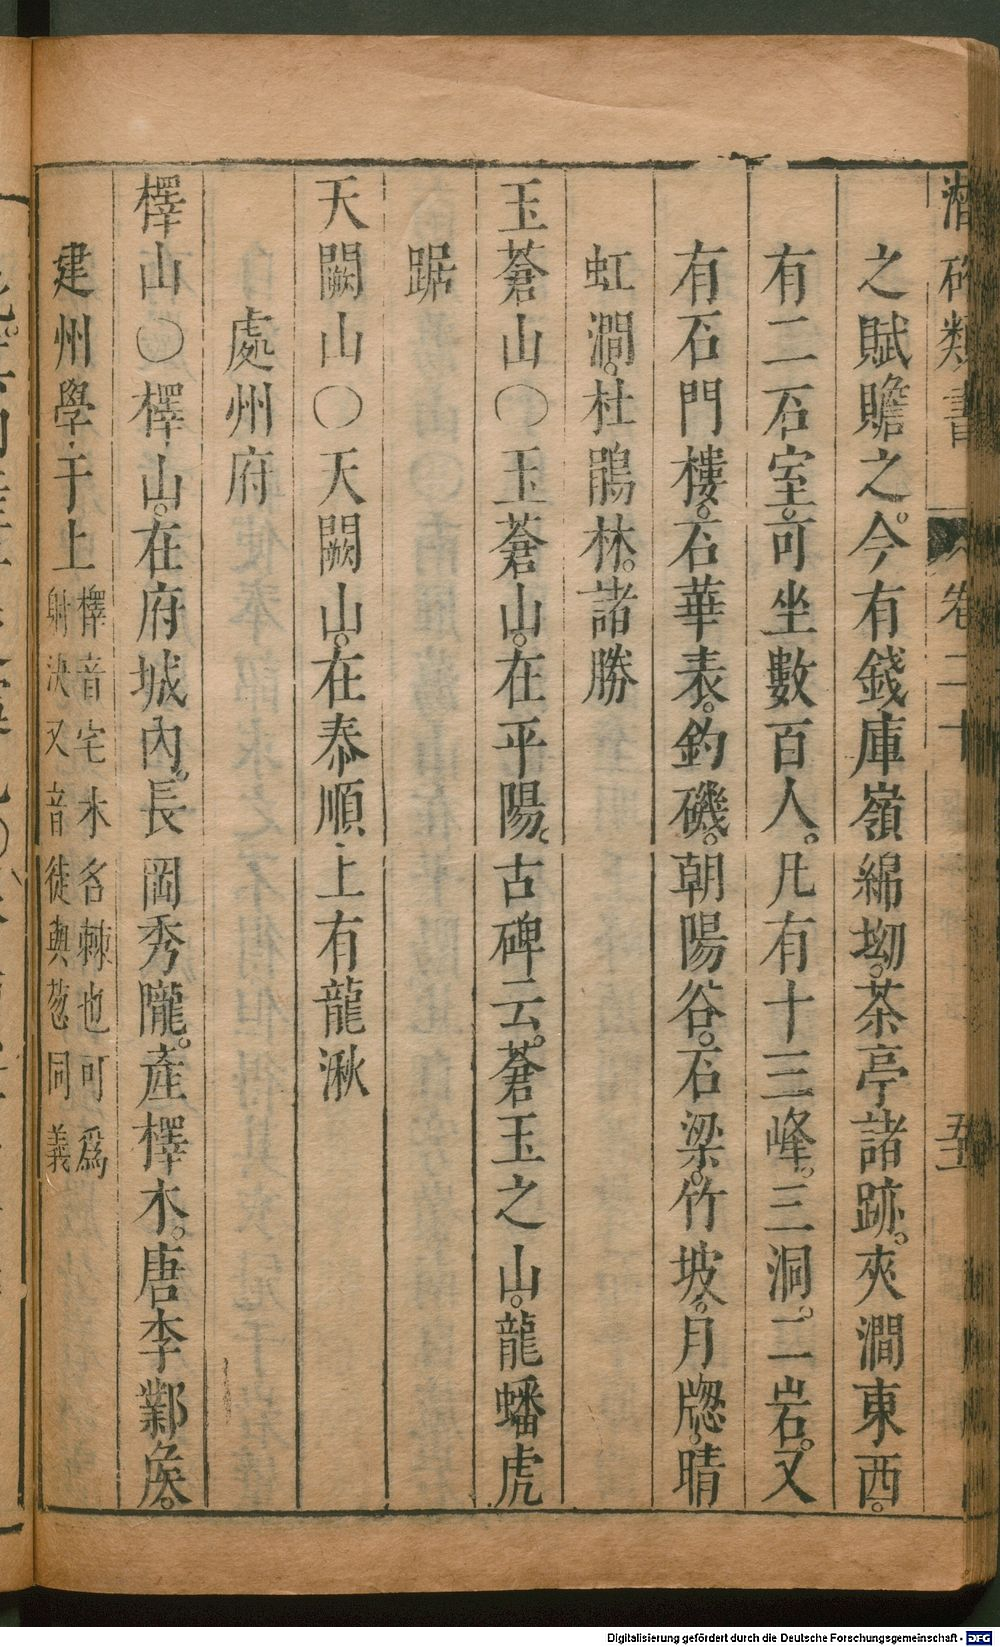 潛確類書 卷二十 五
之賦贍之。今有錢庫嶺綿坳。茶亭諸跡。夾澗東西。
有二石室。可坐數百人。凡有十三峰。三洞。二岩。又
有石門樓。石華表。釣磯。朝陽谷。石梁。竹坡。月牎。晴
虹澗。杜鵑林。諸勝
玉蒼山〇玉蒼山。在平陽。古碑云。蒼玉之山。龍蟠虎
踞
天闕山〇天闕山。在泰順。上有龍湫
處州府
檡山〇檡山。在府城內。長岡秀隴。產檡木。唐李鄴矦。
建州學于上檡音宅木名棘也可爲
射決又音徒與莬同義
Digitalisierung gefördert durch die Deutsche Forschungsgemeinschaft - DFG